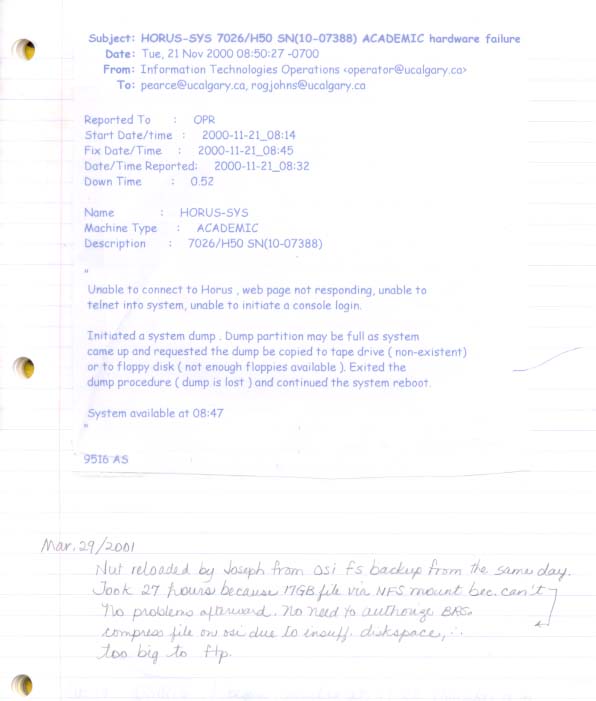 Subject: HORUS-SYS 7026/H50 SN(10-07388) ACADEMIC hardware failure
Date: Tue, 21 Nov 2000 08:50:27 -0700
From: Information Technologies Operations <operator@ucalgary.ca>
To: pearce@ucalgary.ca, rogjohns@ucalgary.ca
Reported To : OPR
Start Date/time : 2000-11-21_08:14
Fix Date/Time : 2000-11-21_08:45
Date/Time Reported: 2000-11-21_08:32
Down Time : 0.52
Name : HORUS-SYS
Machine Type : ACADEMIC
Description : 7026/H50 SN(10-07388)
"
Unable to connect to Horus , web page not responding, unable to
telnet into system, unable to initiate a console login.
Initiated a system dump . Dump partition may be full as system
came up and requested the dump be copied to tape drive ( non-existent)
or to floppy disk ( not enough floppies available ). Exited the
dump procedure ( dump is lost ) and continued the system reboot.
System available at 08:47
"
9516 AS
Mar. 29/2001
Nut reloaded by Joseph from osi fs backup from the same day.
Took 27 hours because 17GB file via NFS mount bec. can't
No problems afterward. No need to authorize BRS.
compress file on osi due to insuff. diskspace, ∴
too big to ftp.